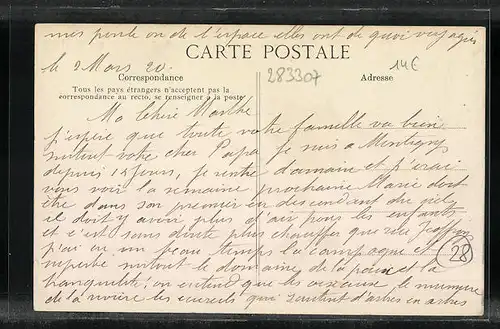 mes poules on de l'espace elles ont de quoi voyager
le 2 Mars 20.
CARTE POSTALE
283307
14€
Correspondance
Adresse
Tous les pays étrangers n'acceptent pas la
correspondance au recto, se renseigner à la poste
Ma Chère Marthe
j'espère que toute votre famille va bien
surtout votre cher Papa je suis a
depuis 15 jours, je rentre demain et j'irai
vous voir la semaine prochaine Marie doit
être dans son premier en descendant du ciel
il doit y avoir plus d'air pour les enfants
et c'est sans doute plus chauffer que rue
j'ai eu un beau temps la campagne est
superbe surtout le domaine de la paix et la
tranquilité; on entend que les oiseaux le murmure
de la rivière les ecureils qui sautent d'arbres en arbres
28